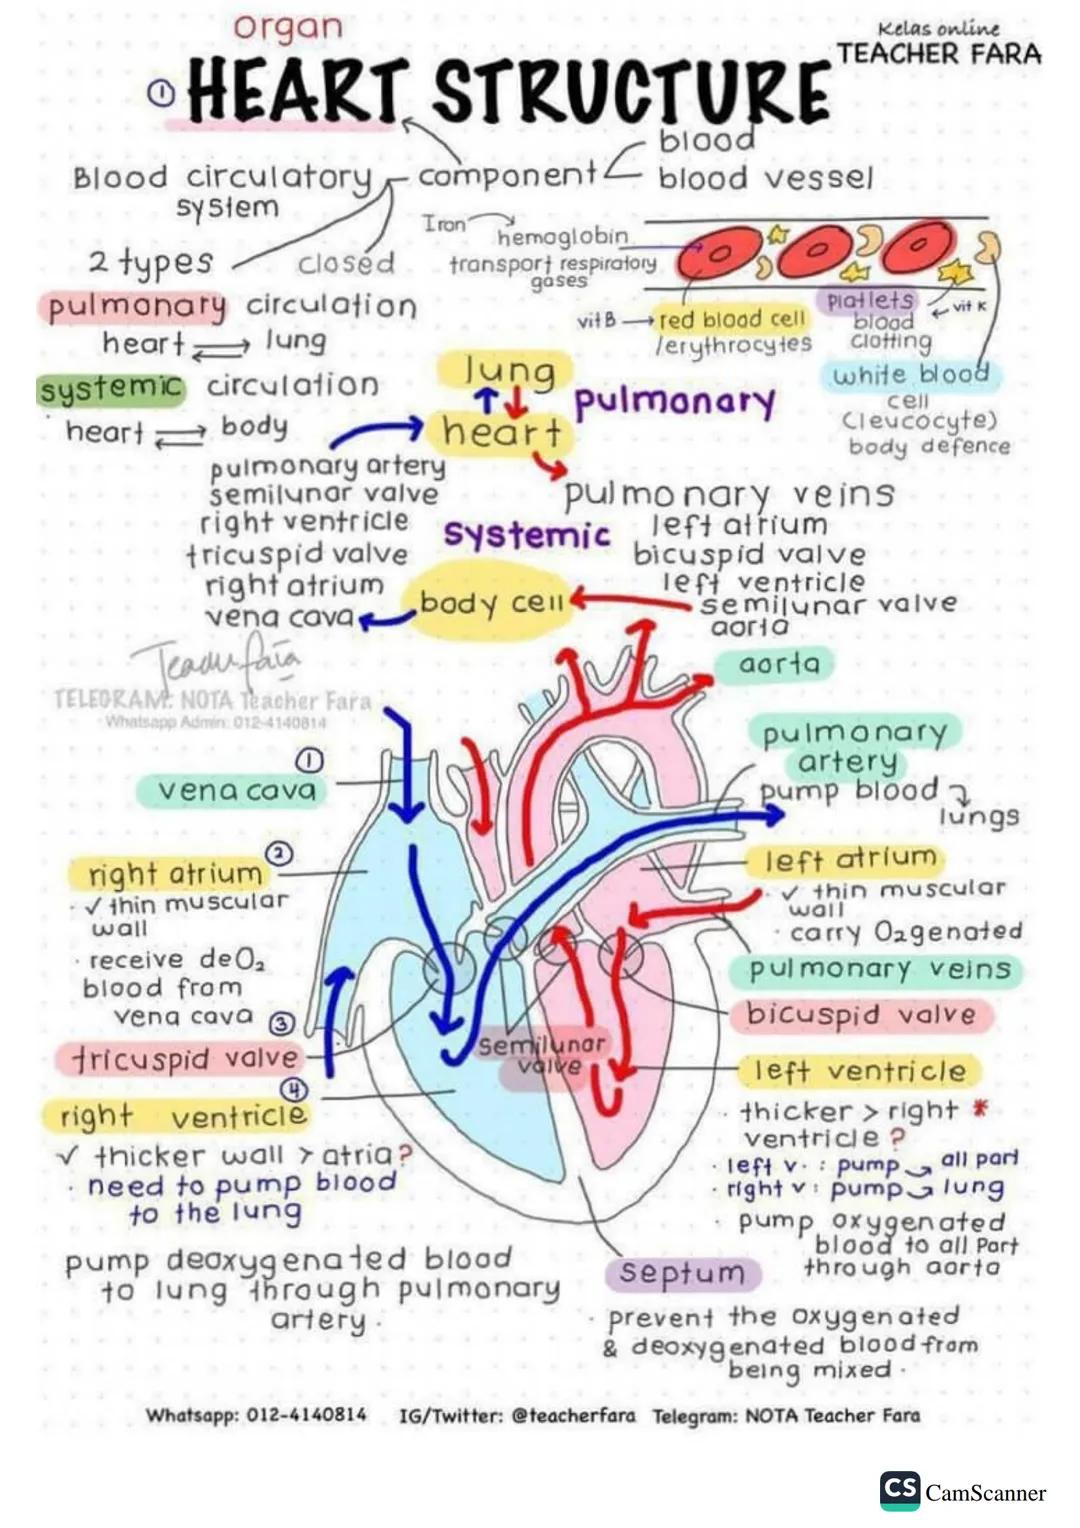 organ
Kelas online
TEACHER FARA
① HEART STRUCTURE
Blood circulatory system
component
blood
blood vessel
2 types
closed
pulmonary circulation
heart ⇌ lung
systemic circulation
heart ⇌ body
Iron
hemoglobin
transport respiratory
gases
vit B → red blood cell
/erythrocytes
platlets
← vit K
blood
clotting
white blood
cell
(leucocyte)
body defence
lung
heart
pulmonary
pulmonary artery
semilunar valve
right ventricle
tricuspid valve
right atrium
vena cava
systemic
body cell
pulmonary veins
left atrium
bicuspid valve
left ventricle
semilunar valve
aorta
Teacher Fara
TELEGRAM: NOTA Teacher Fara
Whatsapp Admin: 012-4140814
①
vena cava
②
right atrium
✓ thin muscular
wall
· receive deO₂
blood from
vena cava
③
tricuspid valve
④
right ventricle
✓ thicker wall > atria?
· need to pump blood
to the lung
pump deoxygenated blood
to lung through pulmonary
artery.
semilunar
valve
aorta
pulmonary
artery
pump blood
lungs
left atrium
✓ thin muscular
wall
· carry O₂genated
pulmonary veins
bicuspid valve
left ventricle
· thicker > right *
ventricle ?
· left v. : pump → all part
· right v : pump → lung
· pump oxygenated
blood to all Part
through aorta
septum
· prevent the oxygenated
& deoxygenated blood from
being mixed.
Whatsapp: 012-4140814 IG/Twitter: @teacherfara Telegram: NOTA Teacher Fara
CS CamScanner